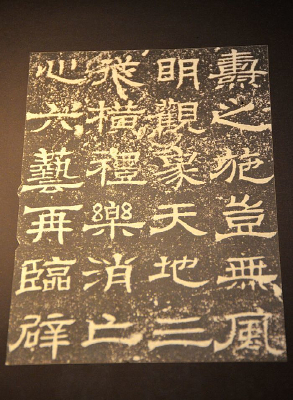 壽之施豈無風
明觀象天地三
從橫禮樂消亡
心六藝再臨辟